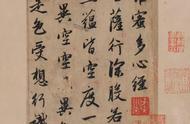 密多心經
薩行深般若
五蘊皆空度一
異空空不異
是色受想行識